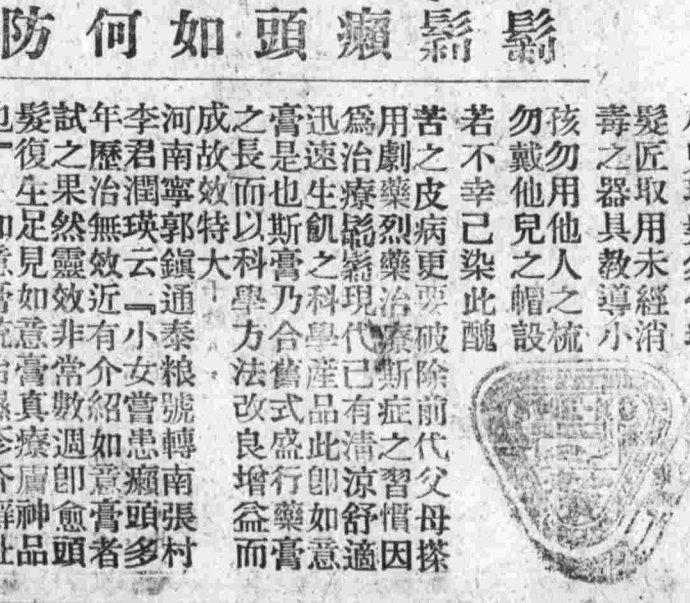 鬎鬁癩頭如何防
髮匠取用未經消
毒之器具教導小
孩勿用他人之梳
勿戴他兒之帽設
若不幸己染此醜
苦之皮病更要破除前代父母搽
用劇藥烈藥治療斯症之習慣因
爲治療鬎鬁現代已有清涼舒適
迅速生飢之科學產品此卽如意
膏是也斯膏乃合舊式盛行藥膏
之長而以科學方法改良增益而
成故效特大
河南寧郭鎭通泰粮號轉南張村
李君潤瑛云『小女嘗患癩頭多
年歷治無效近有介紹如意膏者
試之果然靈效非常數週卽愈頭
髮復生足見如意膏真療膚神品